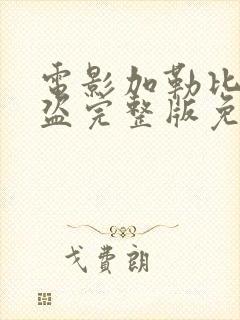 電影加勒比
盜完整版免
戈費朗